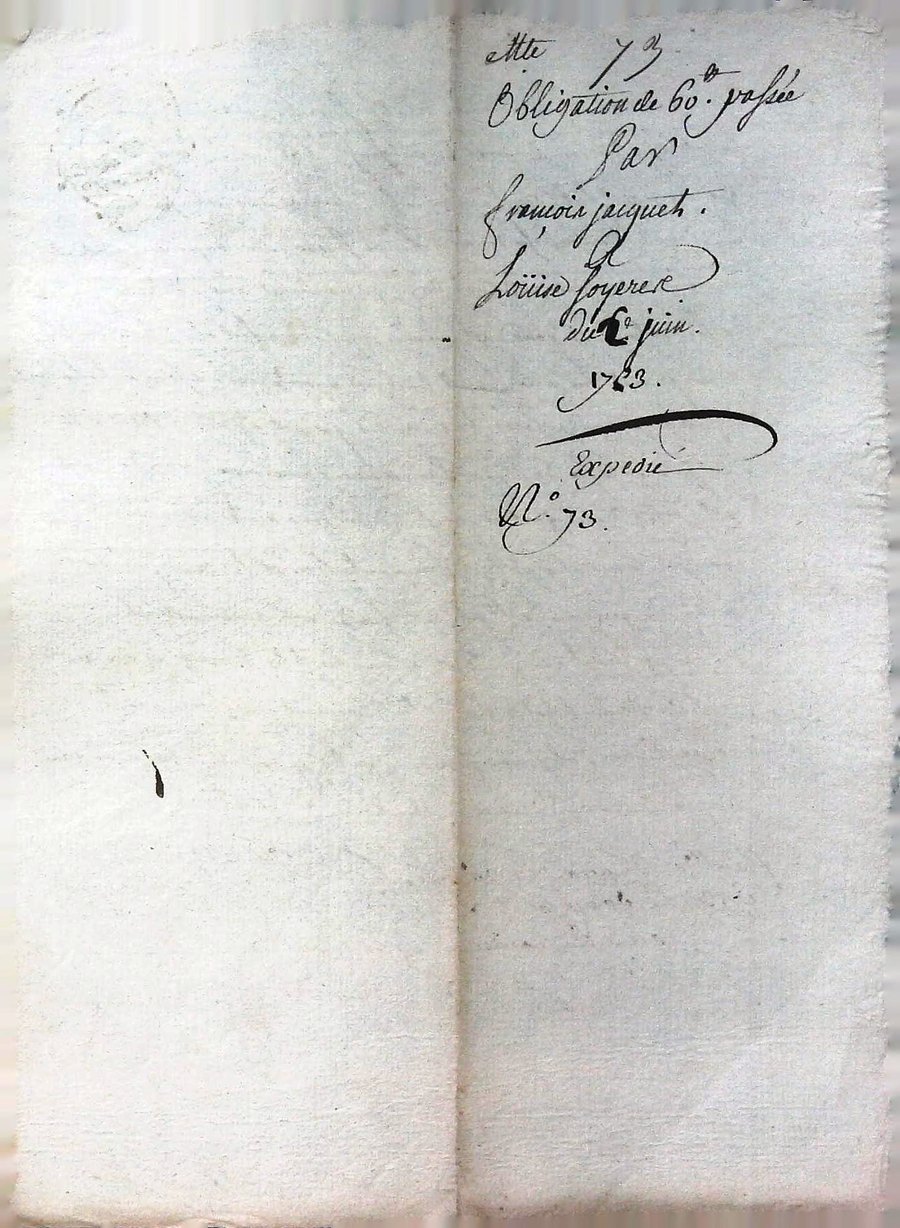 Mte 73
Obligation de 60.tt passée
Par
françois jacquet.
A
Loüise soyere
du juin.
Expedié
N.o 73.